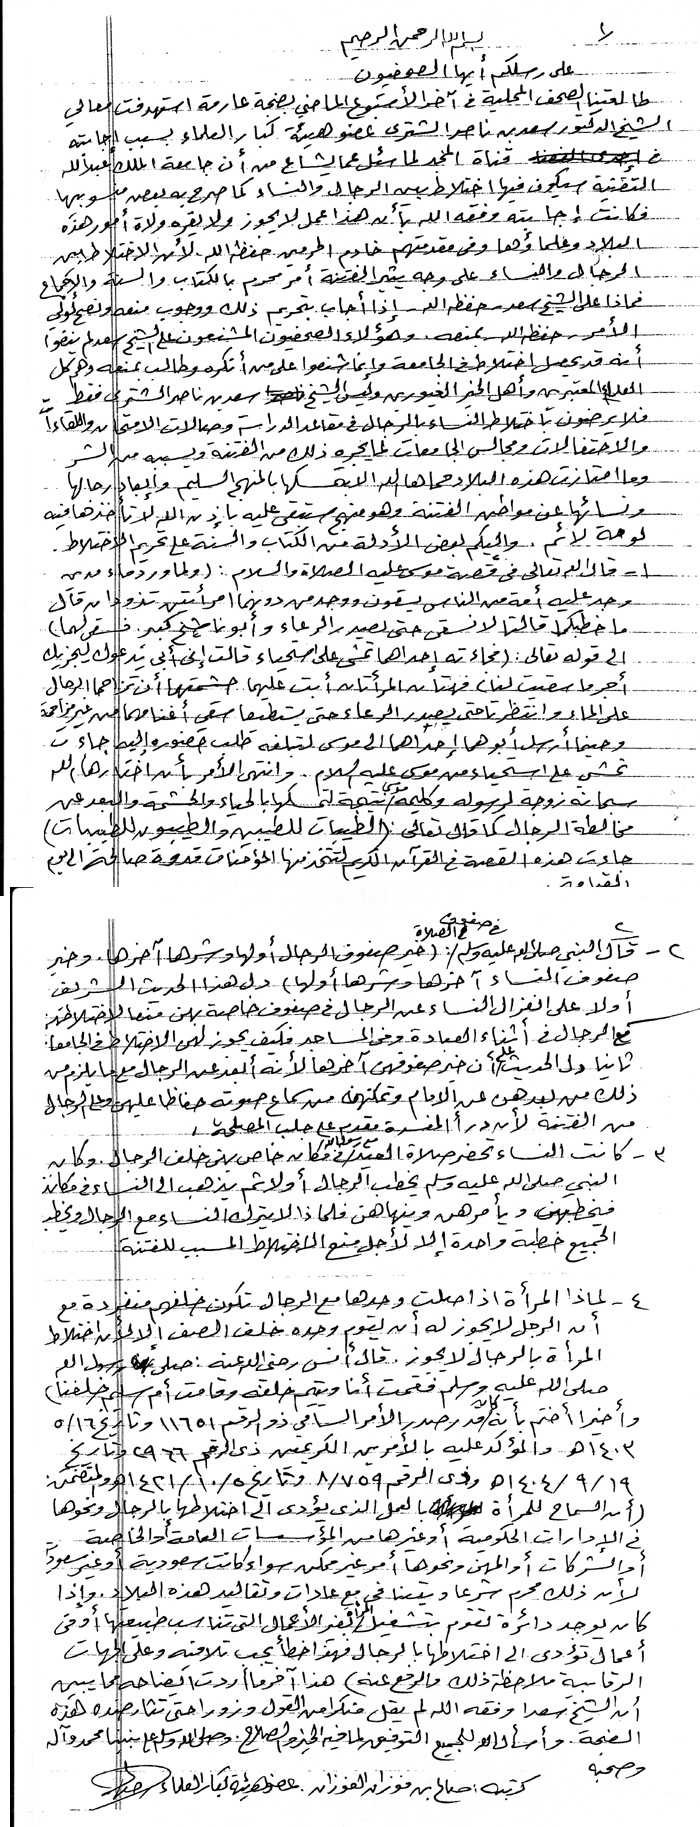 ١
بسم الله الرحمن الرحيم
على رسلكم أيها الصحفيون
طالعتنا الصحف المحلية في آخر الأسبوع الماضي بضجة عارمة استهدفت معالي
الشيخ الدكتور سعد بن ناصر الشثري عضو هيئة كبار العلماء بسبب إجابته
في قناة المجد لما سئل عما يشاع من أن جامعة الملك عبدالله
التقنية سيكون فيها اختلاط بين الرجال والنساء كما صرح به بعض منسوبيها
فكانت إجابته وفقه الله بأن هذا عمل لا يجوز ولا يقره ولاة أمور هذه
البلاد وعلماؤها وفي مقدمتهم خادم الحرمين حفظه الله. لأن الاختلاط بين
الرجال والنساء على وجه يثير الفتنة أمر محرم بالكتاب والسنة والإجماع
فماذا على الشيخ سعد - حفظه الله - إذا أجاب بتحريم ذلك ووجوب منعه ونصح لولي
الأمر - حفظه الله - بمنعه. وهؤلاء الصحفيون المشنعون على الشيخ سعد لم ينفوا
أنه قد يحصل اختلاط في الجامعة وإنما شنعوا على من أنكره وطالب بمنعه وهم كل
العلماء المعتبرين وأهل الخير الغيورين وليس الشيخ سعد بن ناصر الشثري فقط
فلا يرضون باختلاط النساء بالرجال في مقاعد الدراسة وصالات الامتحان واللقاءات
والاحتفالات ومجالس الجامعات لما يجره ذلك من الفتنة ويسببه من الشر
وما امتازت هذه البلاد حماها الله إلا بتمسكها بالمنهج السليم وإبعاد رجالها
ونسائها عن مواطن الفتنة وهو منهج ستبقى عليه بإذن الله لا تأخذها فيه
لومة لائم. وإليكم بعض الأدلة من الكتاب والسنة على تحريم الاختلاط.
١- قال الله تعالى في قصة موسى عليه الصلاة والسلام: (ولما ورد ماء مدين
وجد عليه أمة من الناس يسقون ووجد من دونهم امرأتين تذودان قال
ما خطبكما قالتا لا نسقي حتى يصدر الرعاء وأبونا شيخ كبير. فسقى لهما)
إلى قوله تعالى: (فجاءته إحداهما تمشي على استحياء قالت إن أبي يدعوك ليجزيك
أجر ما سقيت لنا) فهتان المرأتان أبت عليهما حشمتهما أن تزاحما الرجال
على الماء وانتظرتا حتى يصدر الرعاء حتى يستطيعا سقي أغنامهما من غير مزاحمة
وحينما أرسل أبوهما إحداهما إلى موسى لتبلغه طلب حضوره إليه جاءت
تمشي على استحياء من موسى عليه السلام. وانتهى الأمر بأن اختارها الله
سبحانه زوجة لرسوله وكليمه موسى نتيجة لتمسكها بالحياء والحشمة والبعد عن
مخالطة الرجال كما قال تعالى: (الطيبات للطيبين والطيبون للطيبات)
جاءت هذه القصة في القرآن الكريم لتتخذ منها المؤمنات قدوة صالحة إلى يوم
القيامة.
٢
٢- قال النبي صلى الله عليه وسلم في صفوف الصلاة: (خير صفوف الرجال أولها وشرها آخرها. وخير
صفوف النساء آخرها وشرها أولها) دل هذا الحديث الشريف
أولا على انعزال النساء عن الرجال في صفوف خاصة بهن منعا لاختلاطهن
مع الرجال في أثناء العبادة وفي المساجد فكيف يجوز لهن الاختلاط في الجامعات
ثانيا دل الحديث على أن خير صفوفهن آخرها لأنه أبعد عن الرجال مع ما يلزم من
ذلك من بعدهن عن الإمام وتمكنهن من سماع صوته حفاظا عليهن وعلى الرجال
من الفتنة لأن درأ المفسدة مقدم على جلب المصلحة.
٣- كانت النساء تحضر صلاة العيد في مكان خاص بهن خلف الرجال. وكان
النبي صلى الله عليه وسلم يخطب الرجال أولا ثم يذهب إلى النساء في مكانهن
فيخطبهن ويأمرهن وينهاهن فلماذا لا يترك النساء مع الرجال ويخطب
الجميع خطبة واحدة إلا لأجل منع الاختلاط المسبب للفتنة
٤- لماذا المرأة إذا صلت وحدها مع الرجال تكون خلفهم منفردة مع
أن الرجل لا يجوز له أن يقوم وحده خلف الصف إلا لأن اختلاط
المرأة بالرجال لا يجوز. قال أنس رضي الله عنه: صلى رسول الله
صلى الله عليه وسلم فقمت أنا ويتيم خلفه وقامت أم سليم خلفنا)
وأخيرا أختم بأنه كان قد صدر الأمر السامي ذو الرقم ١١٦٥١ وتاريخ ٥/١٦
١٤٠٣هـ والمؤكد عليه بالأمرين الكريمين ذي الرقم ٢٩٦٦ وتاريخ
١٤٠٤/٩/١٩هـ وذي الرقم ٨/٧٥٩ وتاريخ ١٤٢١/١٠/٥هـ والمتضمن:
(أن السماح للمرأة بالعمل الذي يؤدي إلى اختلاطها بالرجال ونحوها
في الإدارات الحكومية أو غيرها من المؤسسات العامة أو الخاصة
أو الشركات أو المهن ونحوها أمر غير ممكن سواء كانت سعودية أو غير سعودية
لأن ذلك محرم شرعا ويتنافى مع عادات وتقاليد هذه البلاد. وإذا
كان يوجد دائرة تقوم بتشغيل المرأة بغير الأعمال التي تناسب طبيعتها أو في
أعمال تؤدي إلى اختلاطها بالرجال فهذا خطأ يجب تلافيه وعلى الجهات
الرقابية ملاحظة ذلك والرفع عنه) هذا آخر ما أردت إيضاحه مما يبين
أن الشيخ سعدا وفقه الله لم يقل منكرا من القول وزورا حتى تثار ضده هذه
الضجة. وأسأل الله للجميع التوفيق لما فيه الخير والصلاح. وصلى الله وسلم على نبينا محمد وآله
وصحبه
كتبه: صالح بن فوزان الفوزان. عضو هيئة كبار العلماء